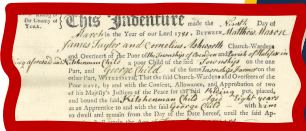 the County of
YORK.
This Indenture made the Ninth Day of
March in the Year of our Lord 1791. Between Matthew Mason
James Taylor and Cornelius Ashworth Church-Wardens
and Overseers of the Poor of the Township of Ovenden Parish of Halifax in
Kitchenman Child a poor Child of the said Township on the one
Part, and George Child of the same Township Farmer on the
other Part, WITNESSETH, That the said Church-Wardens and Overseers of the
Poor have, by and with the Consent, Allowance, and Approbation of two
of his Majesty's Justices of the Peace for the said Riding put, placed,
and bound the said Kitchenman Child Aged Eight years
as an Apprentice to and with the said George Child with him
to dwell and remain from the Day of the Date hereof, until the said Ap-